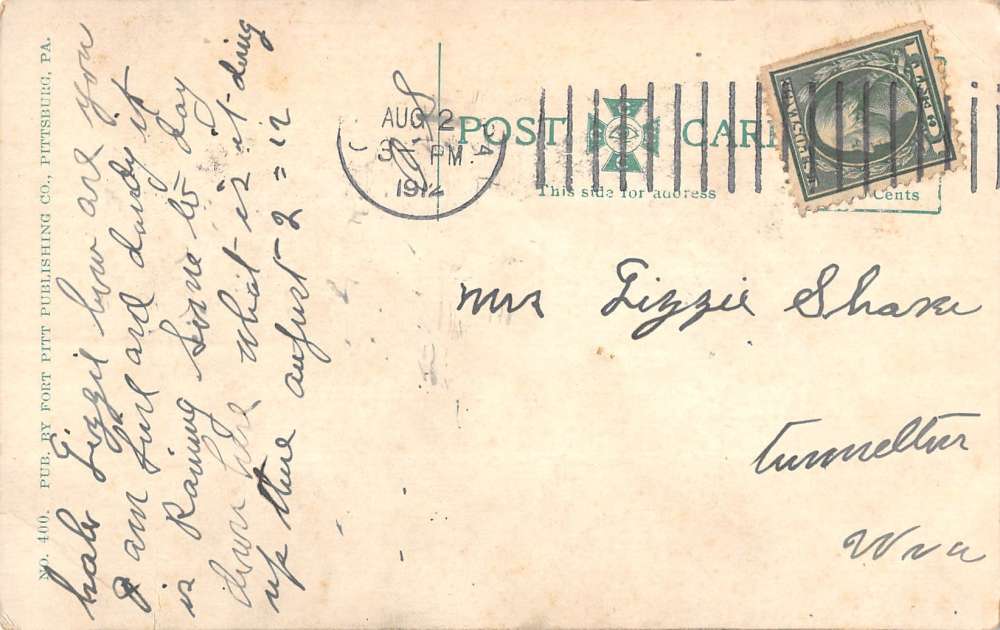 NO. 400. PUB. BY FORT PITT PUBLISHING CO., PITTSBURG, PA.
halo Lizzie how are you
I am fine and dandy it
is Raining Some to day
down here what is it doing
up there august 2 = 12
AUG 2
3 PM.
1912
POST CARD
This side for address
Cents
Mrs Lizzie Shaw
Tunnelton
Wva